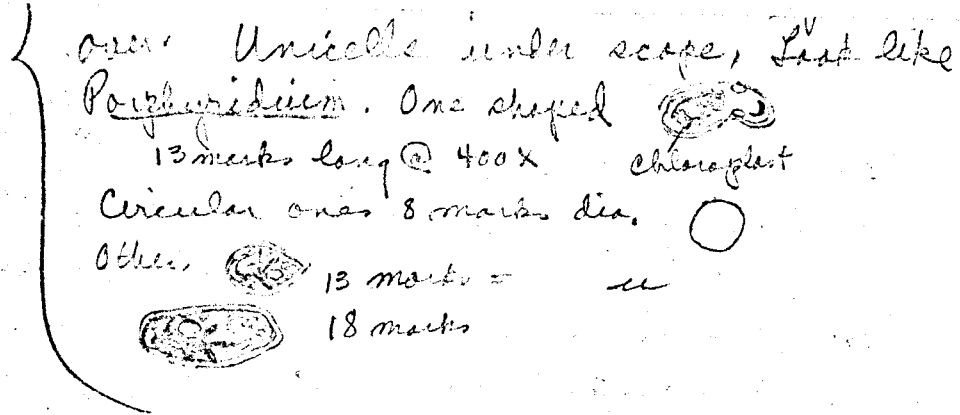 over. Unicells under scope, Look like
Porphyridium. One shaped
13 marks long @ 400X chloroplast
Circular ones 8 marks dia.
Other
13 marks = u
18 marks